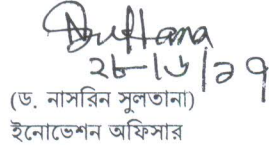 Sultana
২৮/৬/১৭
(ড. নাসরিন সুলতানা)
ইনোভেশন অফিসার